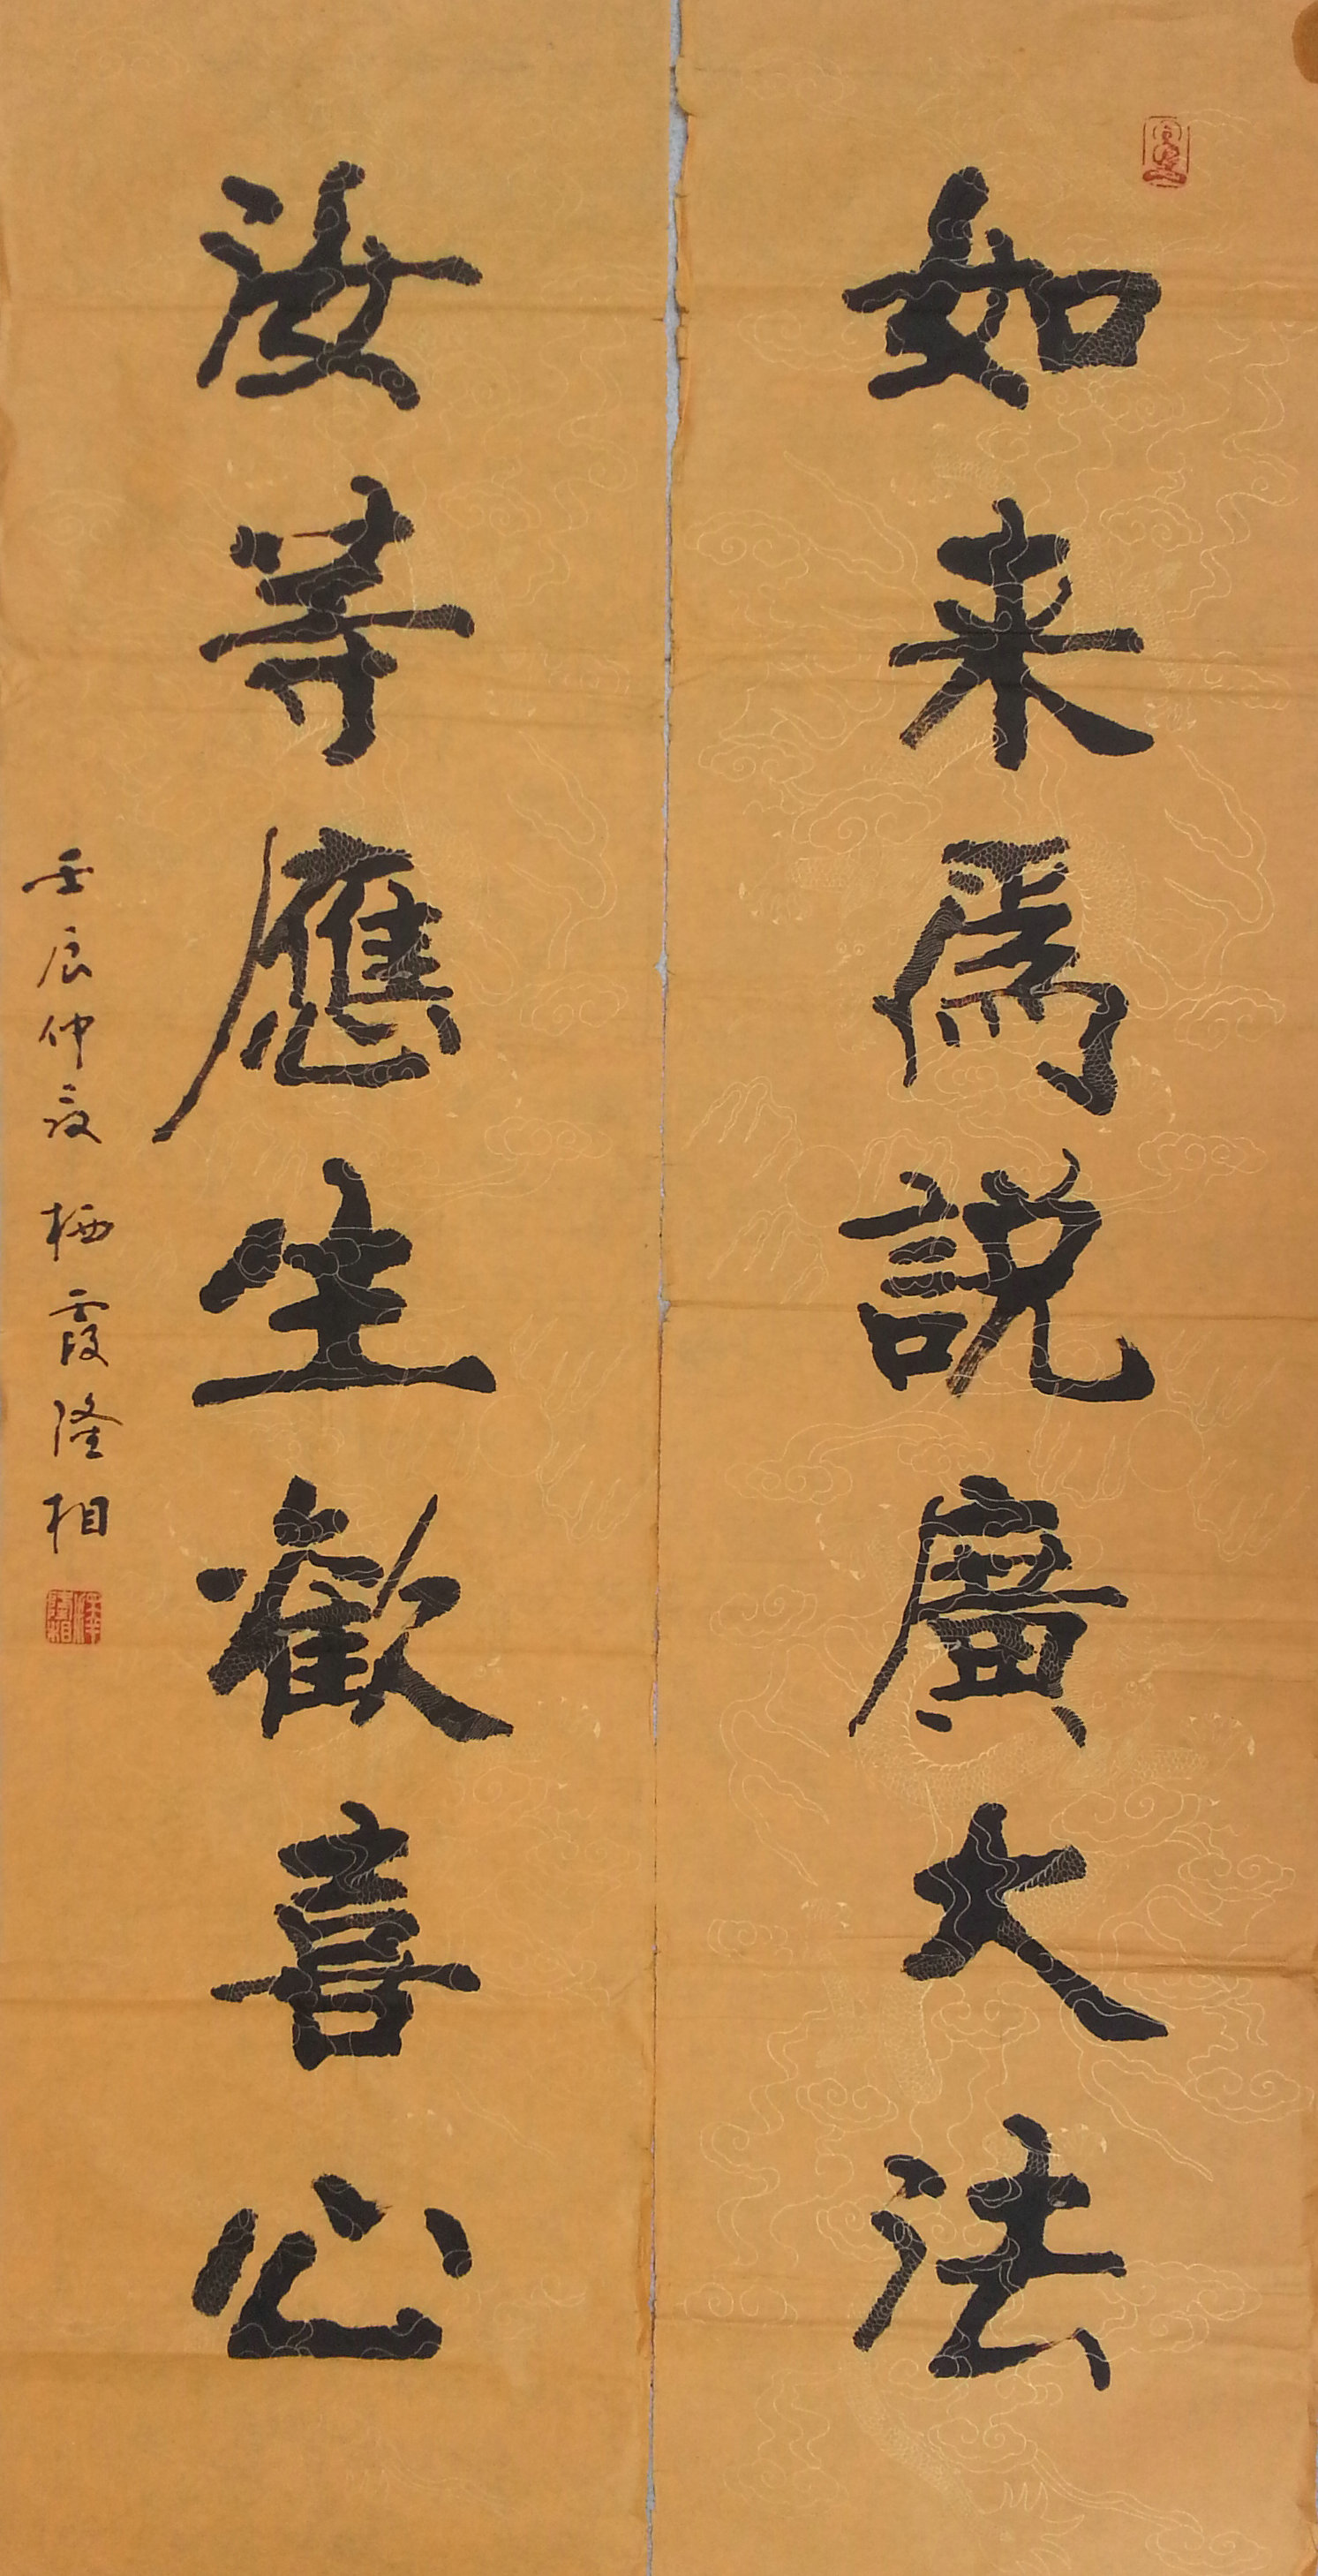 如来為説廣大法
汝等應生歡喜心
壬辰仲夏 栖霞隆相